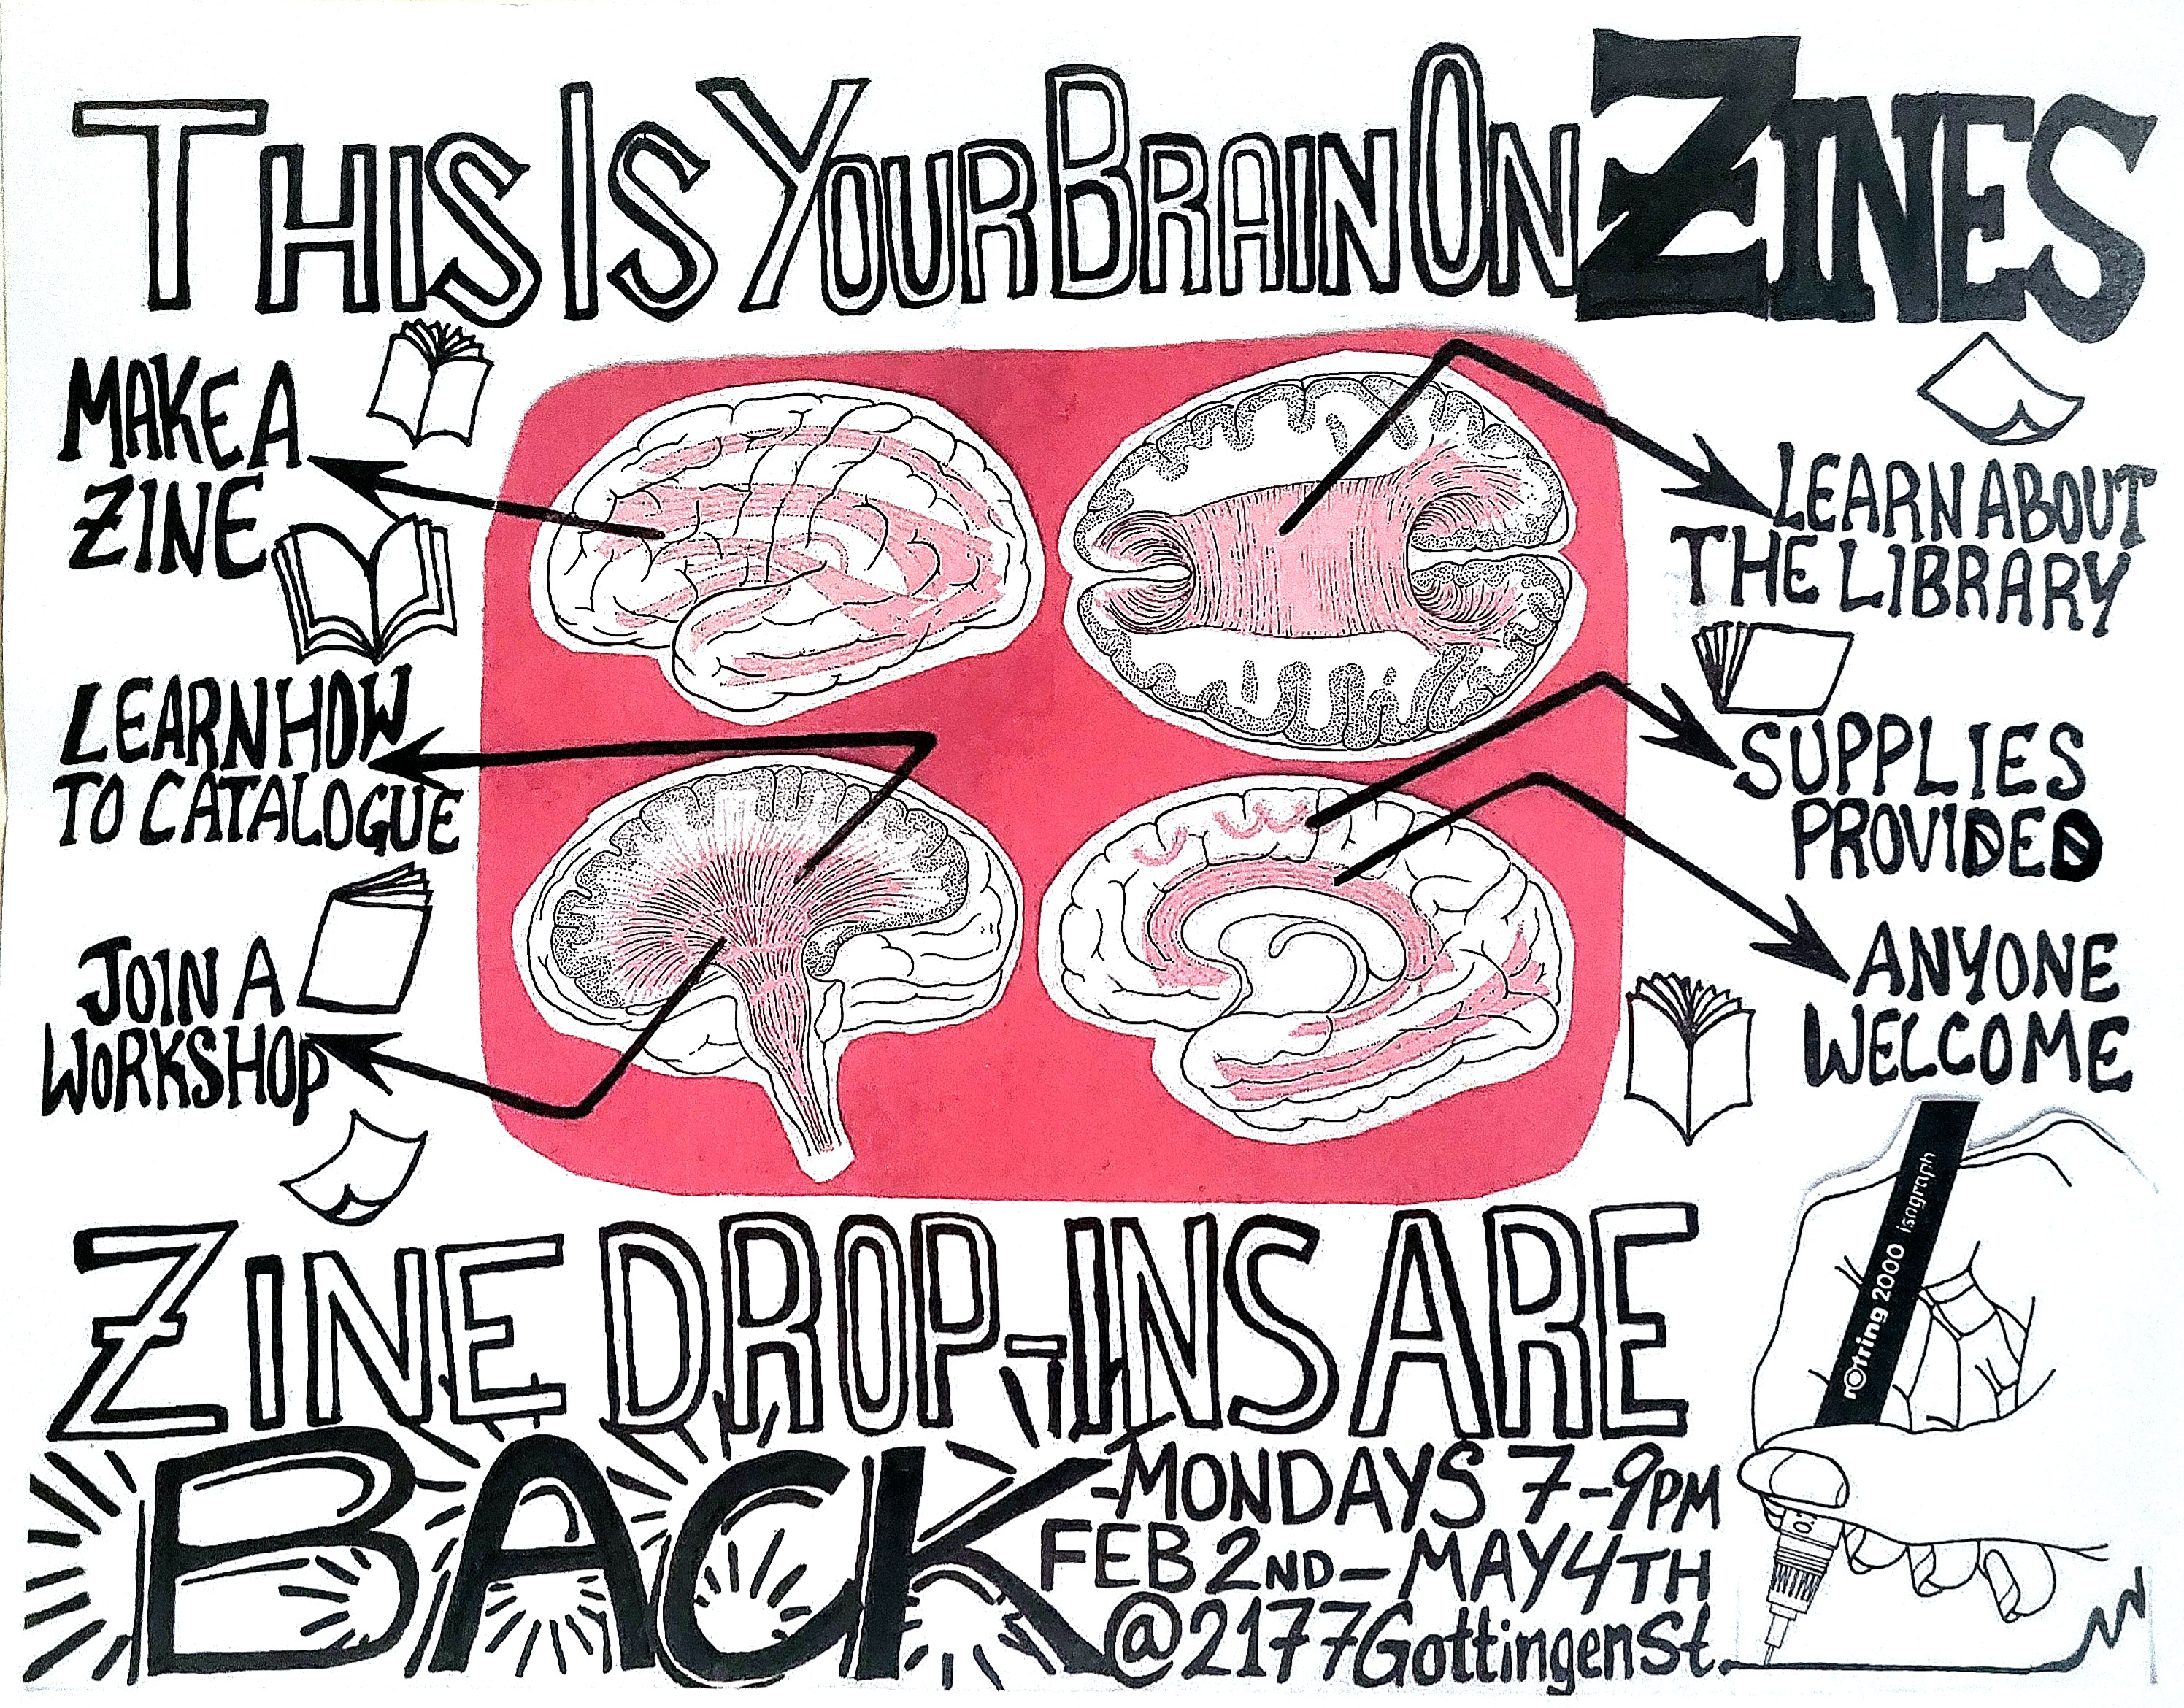 THIS IS YOUR BRAIN ON ZINES
MAKE A
ZINE
LEARN HOW
TO CATALOGUE
JOIN A
WORKSHOP
LEARN ABOUT
THE LIBRARY
SUPPLIES
PROVIDED
ANYONE
WELCOME
rotring 2000 isograph
ZINE DROP-INS ARE
BACK
-MONDAYS 7-9PM
FEB 2ND-MAY 4TH
@2177 Gottingen St.